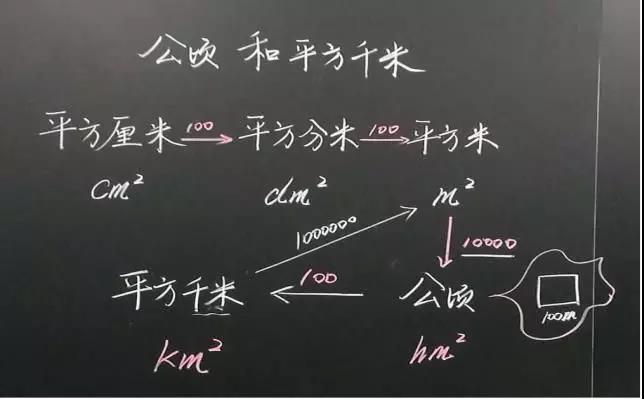 公顷和平方千米
平方厘米 100 平方分米 100 平方米
cm² dm² m²
1000000 10000
平方千米 100 公顷 100m
km² hm²